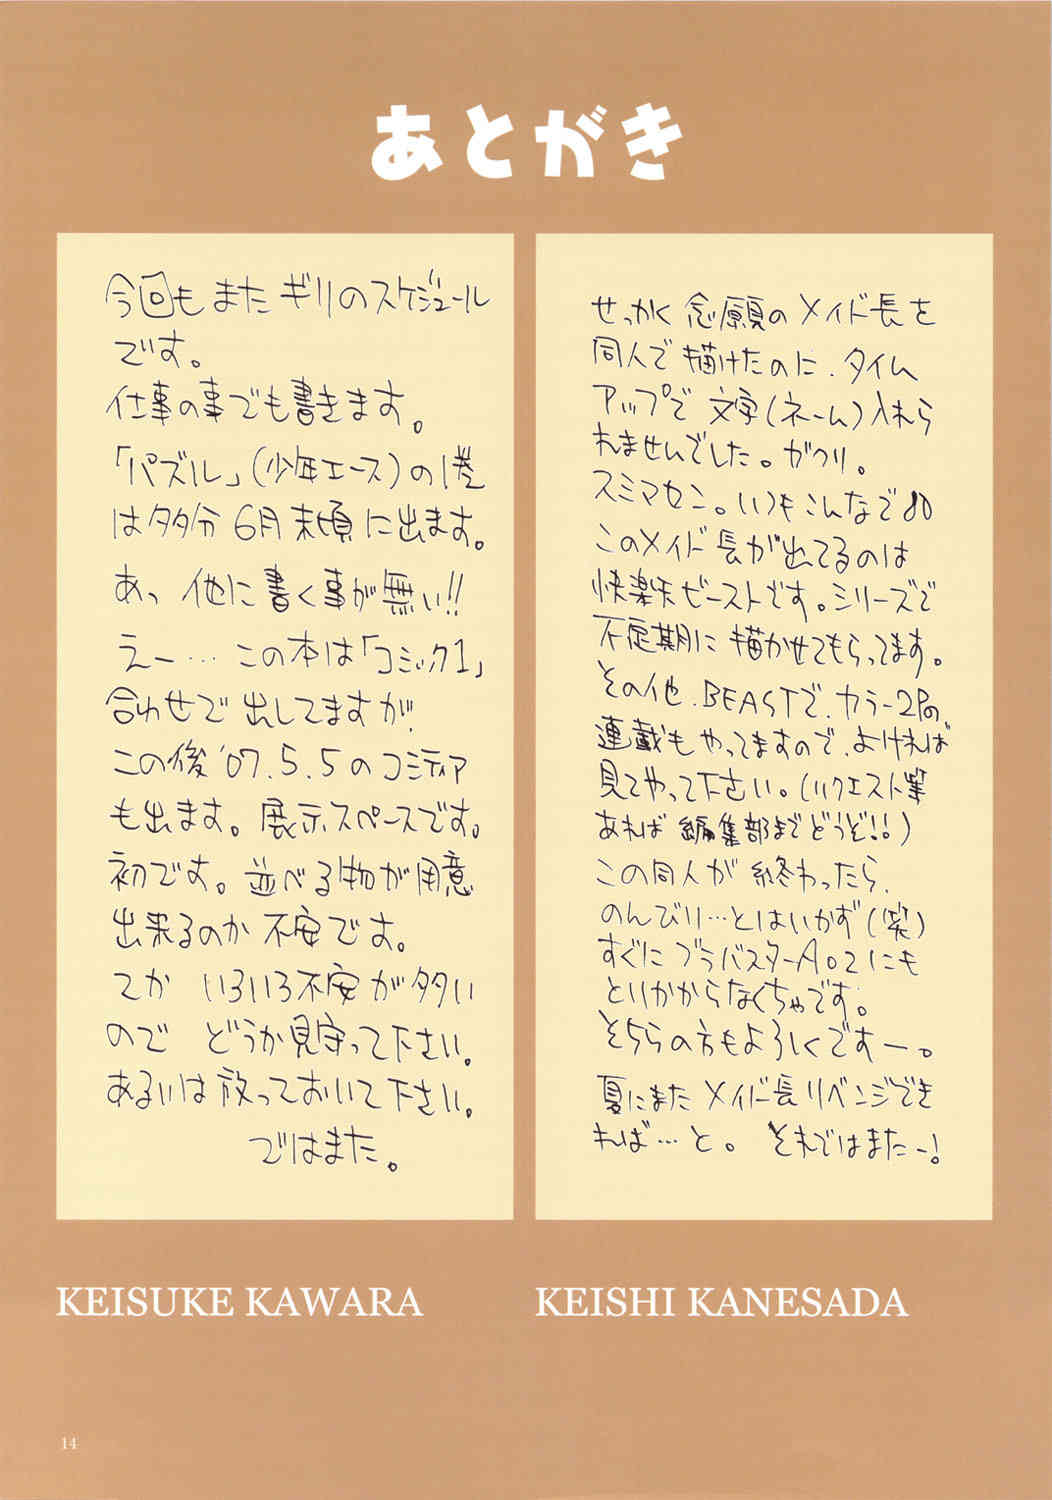 あとがき
今回もまたギリのスケジュール
です。
仕事の事でも書きます。
「パズル」(少年エース)の1巻
は多分6月末頃に出ます。
あっ 他に書く事が無い!!
えー… この本は「コミック1」
合わせで出してますが
この後'07.5.5のコミティア
も出ます。展示スペースです。
初です。並べる物が用意
出来るのか不安です。
てか いろいろ不安が多い
ので どうか見守って下さい。
あるいは放っておいて下さい。
ではまた。
KEISUKE KAWARA
せっかく念願のメイド長を
同人で描けたのに、タイム
アップで文字(ネーム)入れら
れませんでした。ガクリ。
スミマセン。いつもこんなで
このメイド長が出てるのは
快楽天ビーストです。シリーズで
不定期に描かせてもらってます。
その他、BEASTで、カラー2Pの、
連載もやってますので、よければ
見てやって下さい。(リクエスト等
あれば編集部までどうぞ!!)
この同人が終わったら、
のんびり…とはいかず(笑)
すぐにブラバスターA02にも
とりかからなくちゃです。
そちらの方もよろしくですー。
夏にまたメイド長リベンジでき
れば…と。 それではまたー!
KEISHI KANESADA
14